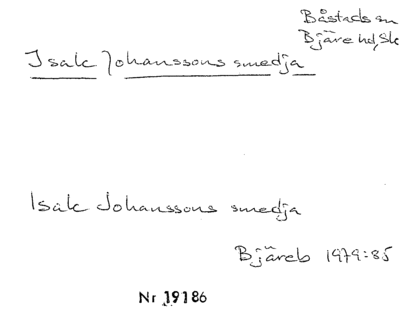 Båstads sn
Bjäre hd, Sk
Isak Johanssons smedja
Isak Johanssons smedja
Bjäreb 1979:85
Nr 19186